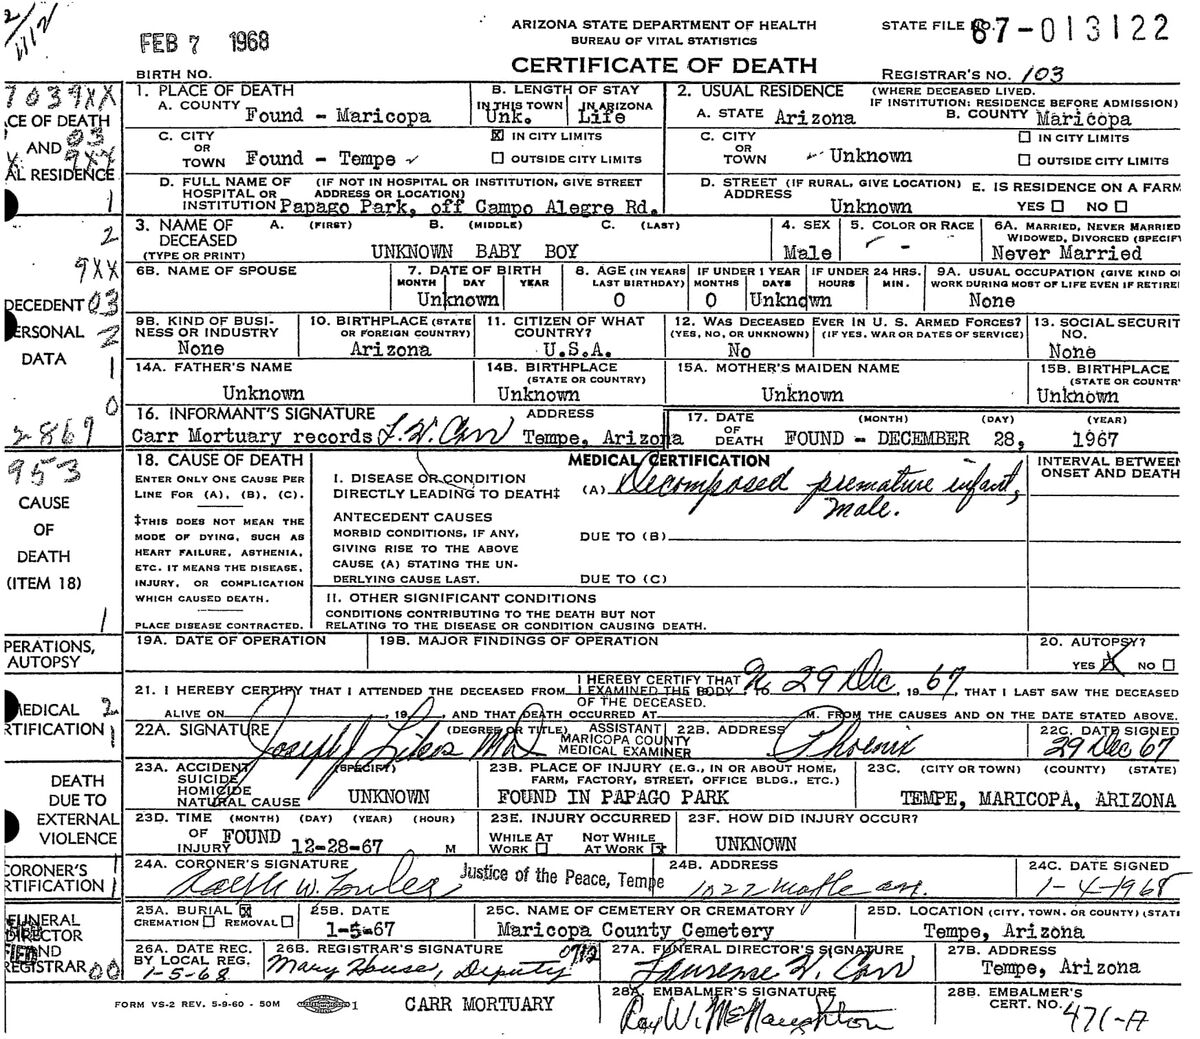 2/112
FEB 7 1968
ARIZONA STATE DEPARTMENT OF HEALTH
BUREAU OF VITAL STATISTICS
CERTIFICATE OF DEATH
STATE FILE NO. 67-013122
REGISTRAR'S NO. 103
BIRTH NO.
7039XX
CE OF DEATH
AND 03
X 9XX
AL RESIDENCE
1
1. PLACE OF DEATH
A. COUNTY Found - Maricopa
B. LENGTH OF STAY
IN THIS TOWN Unk. IN ARIZONA Life
2. USUAL RESIDENCE (WHERE DECEASED LIVED. IF INSTITUTION: RESIDENCE BEFORE ADMISSION)
A. STATE Arizona B. COUNTY Maricopa
C. CITY OR TOWN Found - Tempe ☒ IN CITY LIMITS ☐ OUTSIDE CITY LIMITS
C. CITY OR TOWN Unknown ☐ IN CITY LIMITS ☐ OUTSIDE CITY LIMITS
D. FULL NAME OF HOSPITAL OR INSTITUTION (IF NOT IN HOSPITAL OR INSTITUTION, GIVE STREET ADDRESS OR LOCATION) Papago Park, off Campo Alegre Rd.
D. STREET ADDRESS (IF RURAL, GIVE LOCATION) Unknown E. IS RESIDENCE ON A FARM YES ☐ NO ☐
2
9XX
DECEDENT 03
PERSONAL 2
DATA 1
0
2867
3. NAME OF DECEASED (TYPE OR PRINT) A. (FIRST) B. (MIDDLE) C. (LAST) UNKNOWN BABY BOY
4. SEX Male
5. COLOR OR RACE -
6A. MARRIED, NEVER MARRIED WIDOWED, DIVORCED (SPECIFY Never Married
6B. NAME OF SPOUSE
7. DATE OF BIRTH MONTH DAY YEAR Unknown
8. AGE (IN YEARS LAST BIRTHDAY) 0
IF UNDER 1 YEAR MONTHS 0 DAYS Unknown
IF UNDER 24 HRS. HOURS MIN.
9A. USUAL OCCUPATION (GIVE KIND OF WORK DURING MOST OF LIFE EVEN IF RETIRED None
9B. KIND OF BUSI-NESS OR INDUSTRY None
10. BIRTHPLACE (STATE OR FOREIGN COUNTRY) Arizona
11. CITIZEN OF WHAT COUNTRY? U.S.A.
12. WAS DECEASED EVER IN U. S. ARMED FORCES? (YES, NO, OR UNKNOWN) (IF YES, WAR OR DATES OF SERVICE) No
13. SOCIAL SECURIT NO. None
14A. FATHER'S NAME Unknown
14B. BIRTHPLACE (STATE OR COUNTRY) Unknown
15A. MOTHER'S MAIDEN NAME Unknown
15B. BIRTHPLACE (STATE OR COUNTR Unknown
16. INFORMANT'S SIGNATURE ADDRESS
Carr Mortuary records L. W. Carr Tempe, Arizona
17. DATE OF DEATH (MONTH) (DAY) (YEAR) FOUND - DECEMBER 28, 1967
953
CAUSE
OF
DEATH
(ITEM 18)
1
18. CAUSE OF DEATH
ENTER ONLY ONE CAUSE PER
LINE FOR (A), (B), (C).
‡THIS DOES NOT MEAN THE
MODE OF DYING, SUCH AS
HEART FAILURE, ASTHENIA,
ETC. IT MEANS THE DISEASE,
INJURY, OR COMPLICATION
WHICH CAUSED DEATH.
PLACE DISEASE CONTRACTED.
MEDICAL CERTIFICATION
INTERVAL BETWEEN
ONSET AND DEATH
I. DISEASE OR CONDITION
DIRECTLY LEADING TO DEATH‡ (A) Decomposed premature infant,
male.
ANTECEDENT CAUSES
MORBID CONDITIONS, IF ANY,
GIVING RISE TO THE ABOVE
CAUSE (A) STATING THE UN-
DERLYING CAUSE LAST.
DUE TO (B)
DUE TO (C)
II. OTHER SIGNIFICANT CONDITIONS
CONDITIONS CONTRIBUTING TO THE DEATH BUT NOT
RELATING TO THE DISEASE OR CONDITION CAUSING DEATH.
PERATIONS,
AUTOPSY
19A. DATE OF OPERATION
19B. MAJOR FINDINGS OF OPERATION
20. AUTOPSY?
YES ☒ NO ☐
MEDICAL 2
RTIFICATION 1
I HEREBY CERTIFY THAT
21. I HEREBY CERTIFY THAT I ATTENDED THE DECEASED FROM I EXAMINED THE BODY TO 29 Dec, 1967, THAT I LAST SAW THE DECEASED
OF THE DECEASED.
ALIVE ON , 19 , AND THAT DEATH OCCURRED AT M. FROM THE CAUSES AND ON THE DATE STATED ABOVE.
22A. SIGNATURE (DEGREE OR TITLE) ASSISTANT MARICOPA COUNTY MEDICAL EXAMINER
22B. ADDRESS Phoenix
22C. DATE SIGNED 29 Dec 67
DEATH
DUE TO
EXTERNAL
VIOLENCE
23A. ACCIDENT SUICIDE HOMICIDE NATURAL CAUSE (SPECIFY) UNKNOWN
23B. PLACE OF INJURY (E.G., IN OR ABOUT HOME, FARM, FACTORY, STREET, OFFICE BLDG., ETC.) FOUND IN PAPAGO PARK
23C. (CITY OR TOWN) (COUNTY) (STATE) TEMPE, MARICOPA, ARIZONA
23D. TIME OF INJURY (MONTH) (DAY) (YEAR) (HOUR) FOUND 12-28-67 M
23E. INJURY OCCURRED WHILE AT WORK ☐ NOT WHILE AT WORK ☒
23F. HOW DID INJURY OCCUR? UNKNOWN
CORONER'S 1
RTIFICATION 1
24A. CORONER'S SIGNATURE Ralph W. Fowler Justice of the Peace, Tempe
24B. ADDRESS 1022 Maple Ave.
24C. DATE SIGNED 1-4-1968
FUNERAL
DIRECTOR
AND
REGISTRAR 00
25A. BURIAL ☒ CREMATION ☐ REMOVAL ☐
25B. DATE 1-5-67
25C. NAME OF CEMETERY OR CREMATORY Maricopa County Cemetery
25D. LOCATION (CITY, TOWN, OR COUNTY) (STATE Tempe, Arizona
26A. DATE REC. BY LOCAL REG. 1-5-68
26B. REGISTRAR'S SIGNATURE 0712 Mary House, Deputy
27A. FUNERAL DIRECTOR'S SIGNATURE Laurence W. Carr
27B. ADDRESS Tempe, Arizona
FORM VS-2 REV. 5-9-60 - 50M 1
CARR MORTUARY
28A. EMBALMER'S SIGNATURE Ray W. McNaughton
28B. EMBALMER'S CERT. NO. 471-A